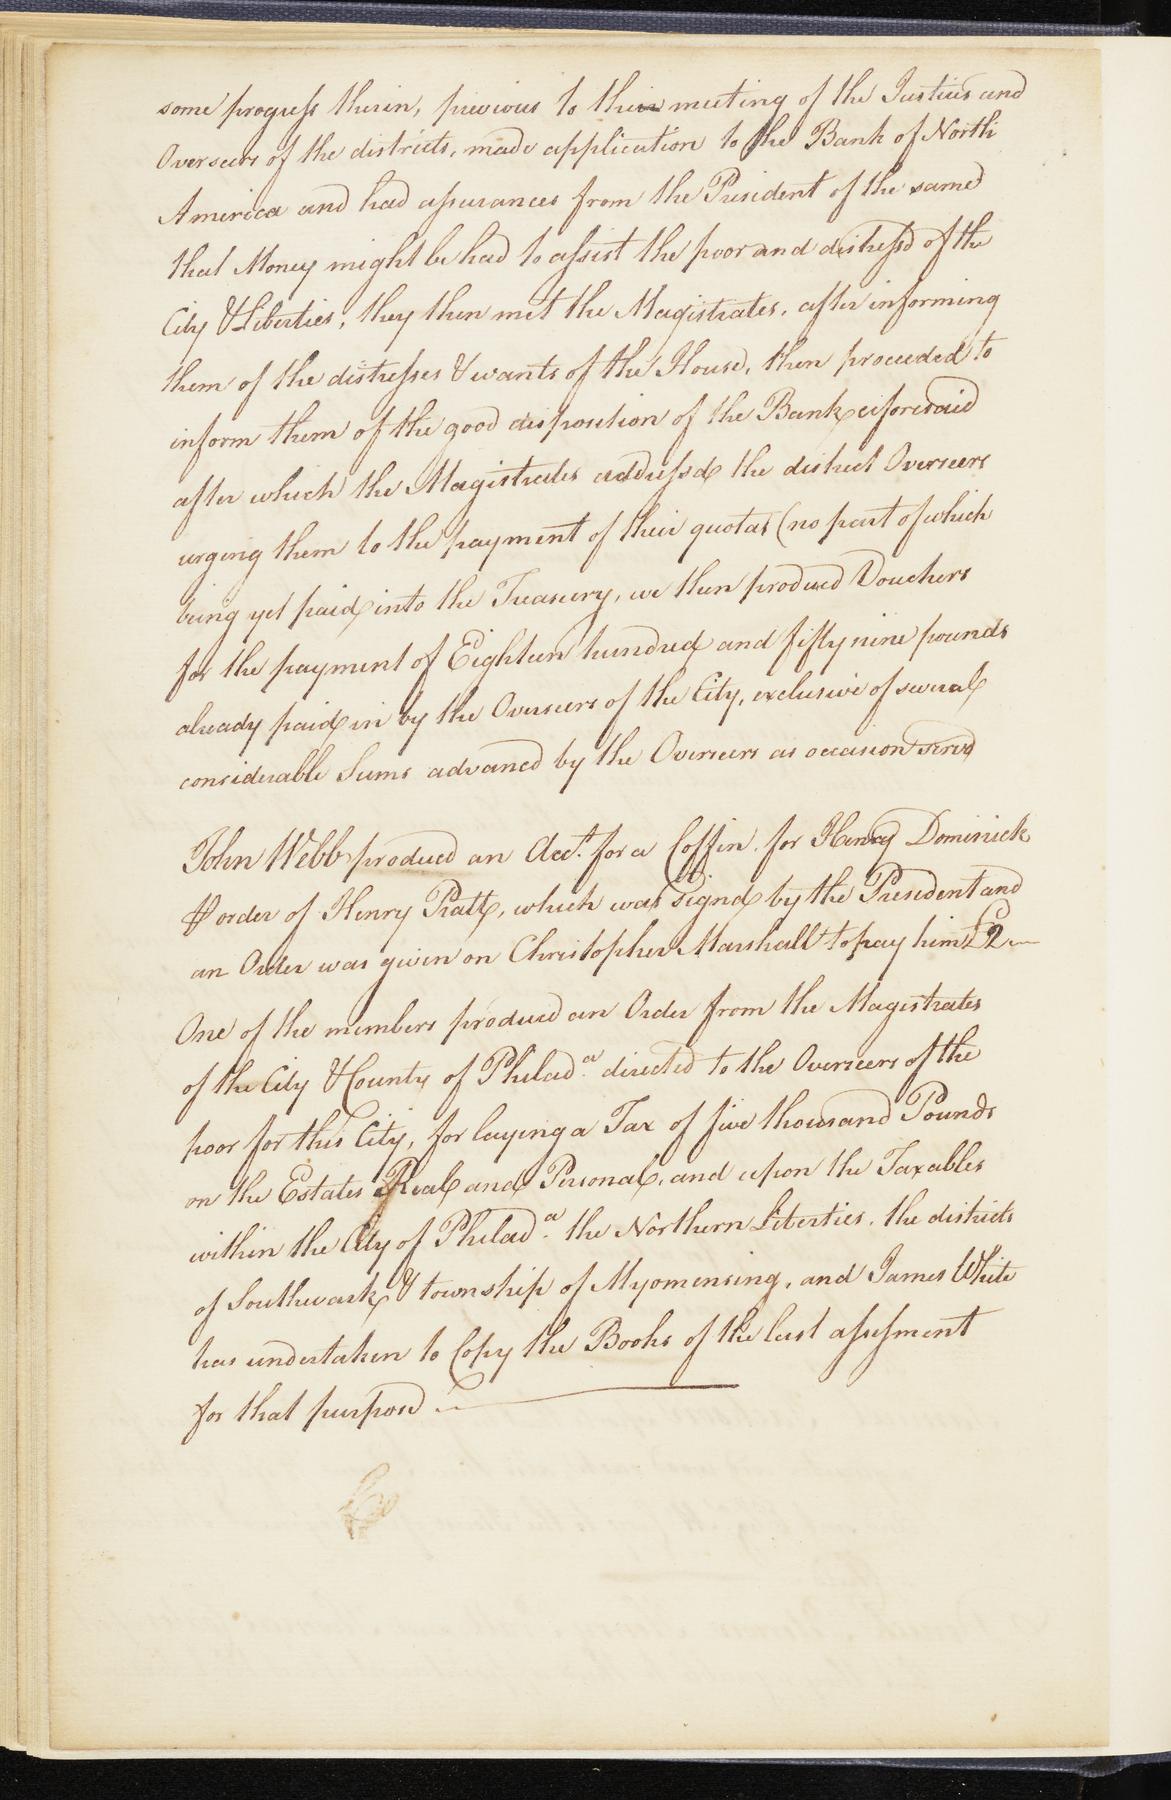 some progress therein, previous to their meeting of the Justices and
Overseers of the districts, made application to the Bank of North
America and had assurances from the President of the same
that Money might be had to assist the poor and distressd of the
City & Liberties, they then met the Magistrates, after informing
them of the distresses & wants of the House, then proceeded to
inform them of the good disposition of the Bank aforesaid
after which the Magistrates addressd the district Overseers
urging them to the payment of their quotas (no part of which
being yet paid into the Treasury, we then produced Vouchers
for the payment of Eighteen hundred and fifty nine pounds
already paid in by the Overseers of the City, exclusive of several
considerable Sums advanced by the Overseers as occasion served
John Webb produced an Acct. for a Coffin for Henry Dominick
⅌ order of Henry Pratt, which was signd by the President and
an Order was given on Christopher Marshall to pay him £2
One of the members produced an Order from the Magistrates
of the City & County of Philada. directed to the Overseers of the
poor for this City, for laying a Tax of five thousand Pounds
on the Estates Real and Personal, and upon the Taxables
within the City of Philada. the Northern Liberties, the districts
of Southwark & township of Myomensing, and James White
has undertaken to Copy the Books of the last assessment
for that purpose